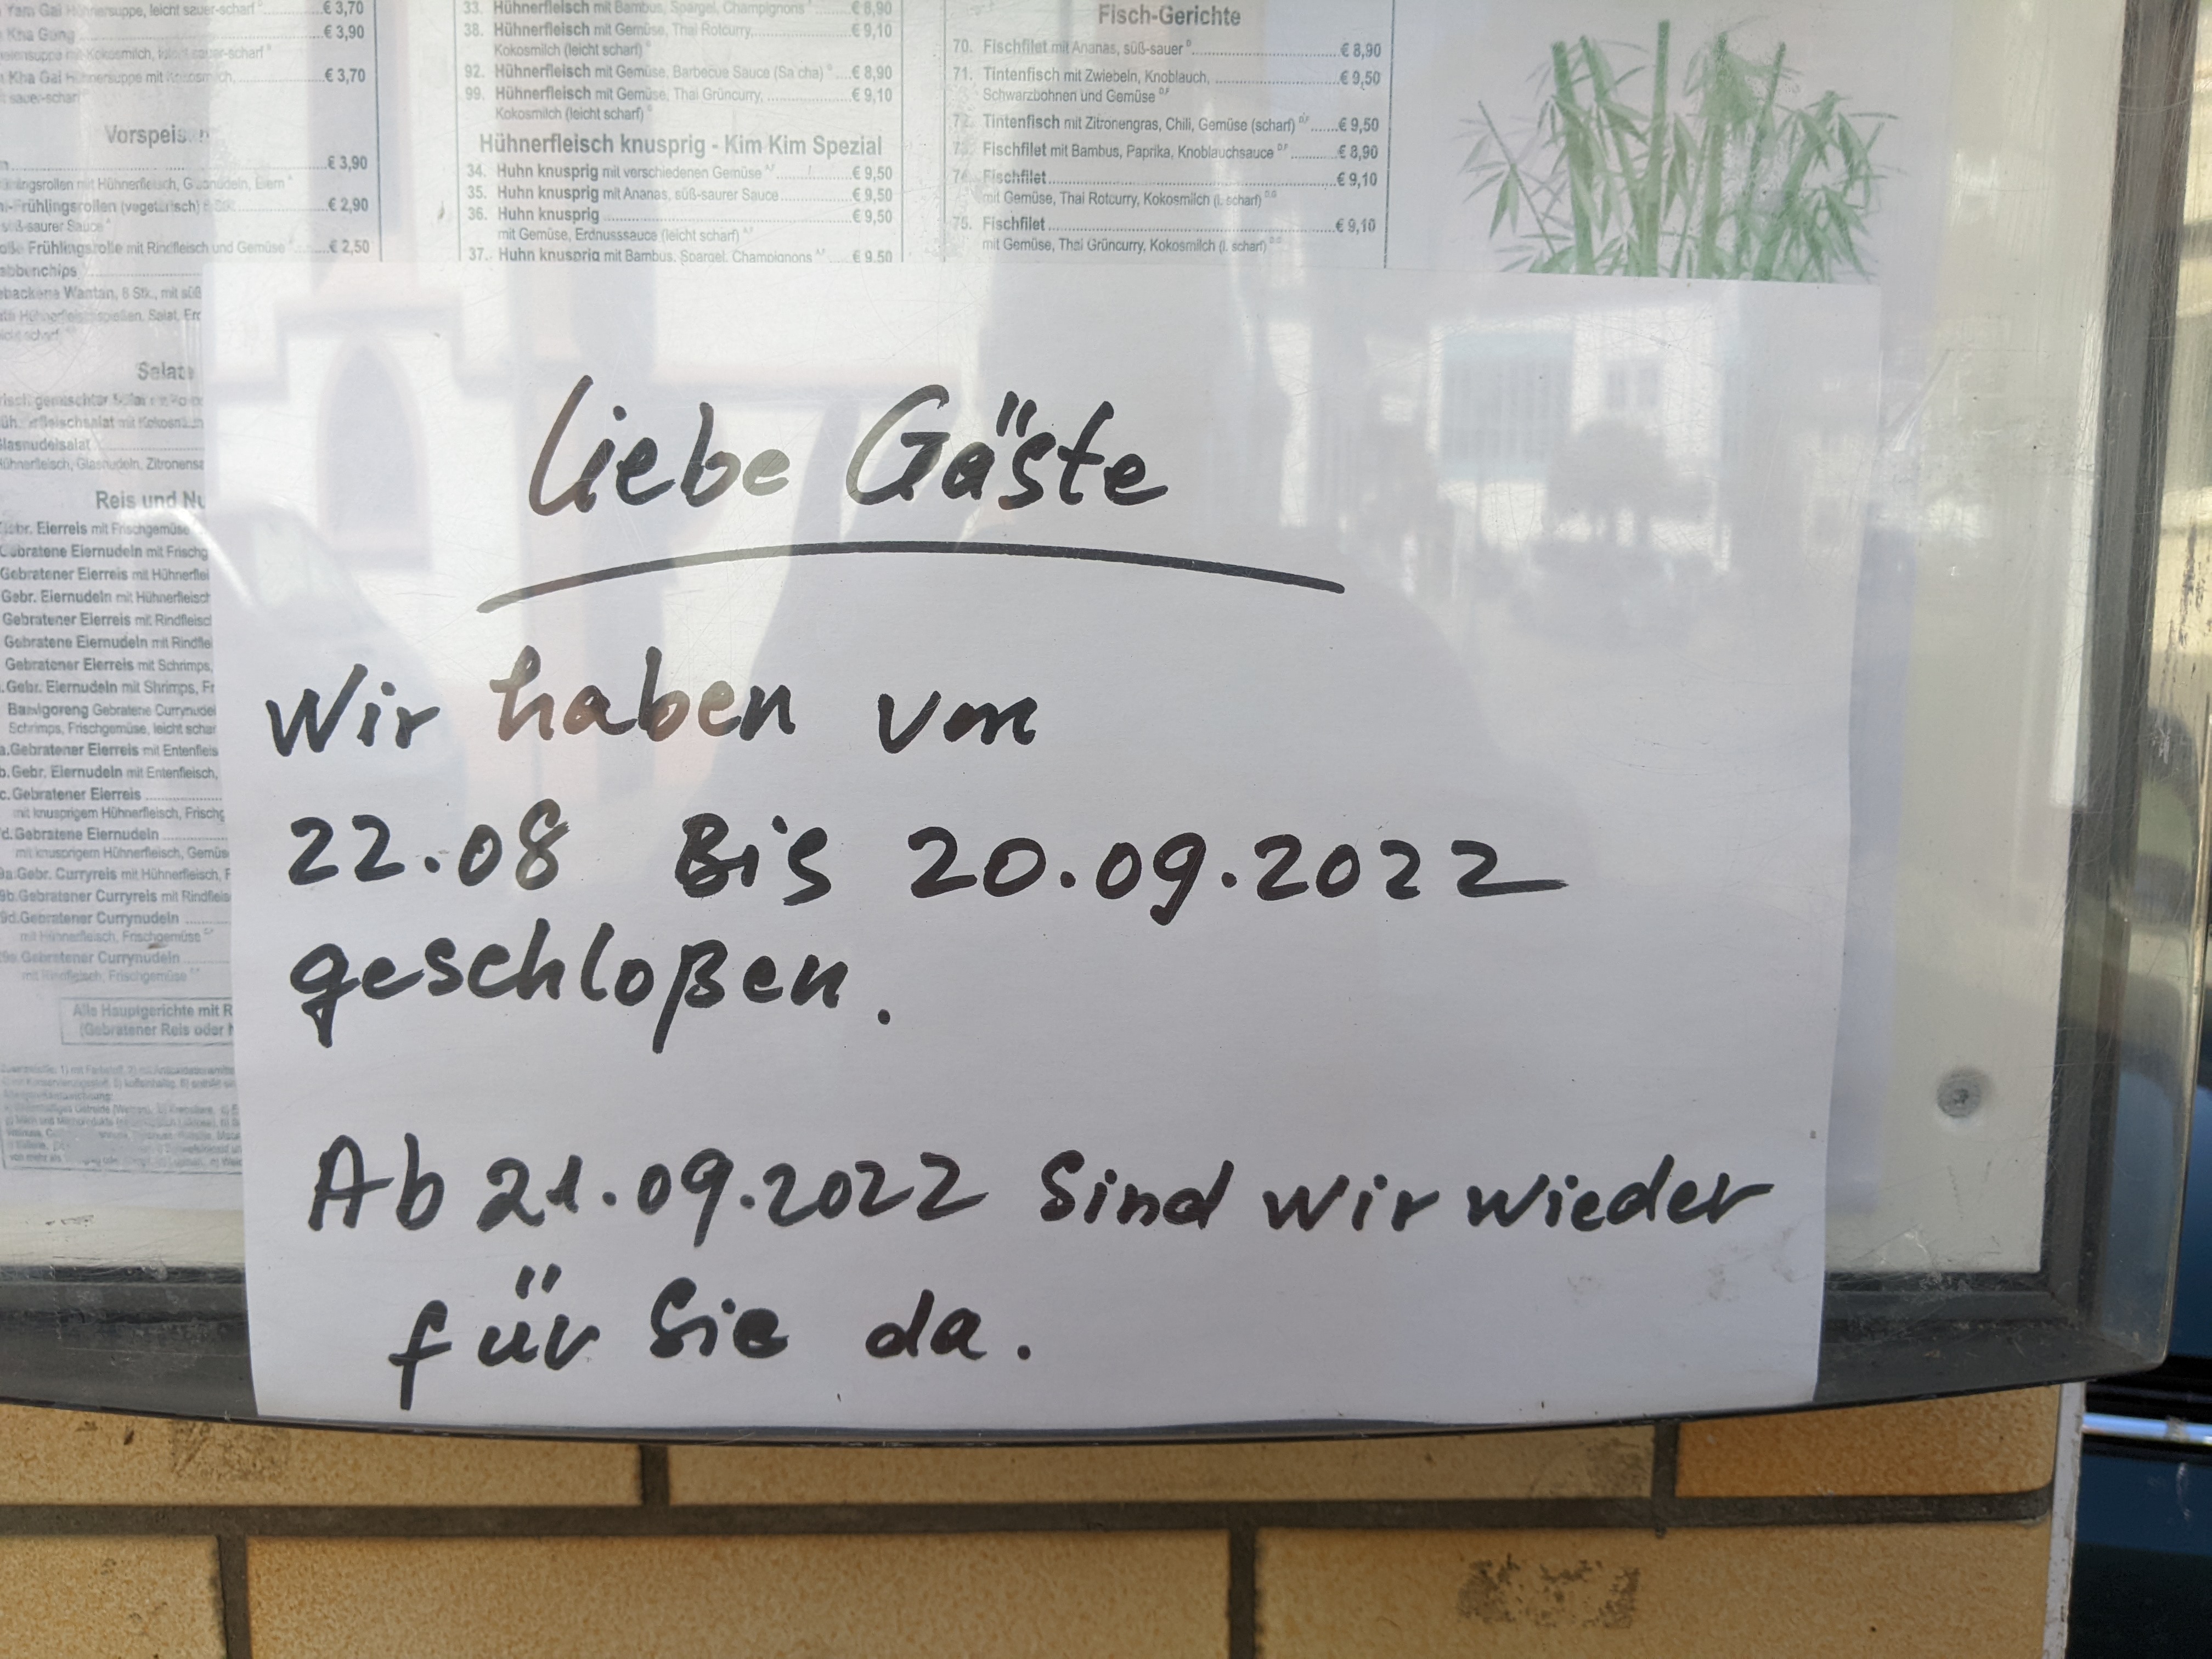 € 3,70
Kha Gung € 3,90
Kha Gai Hühnersuppe mit Kokosmilch, € 3,70
Vorspeis
€ 3,90
€ 2,90
Frühlingsrolle mit Rindfleisch und Gemüse € 2,50
Salat
Glasnudelsalat
Hühnerfleisch, Glasnudeln,
Reis und Nu
Gebr. Eierreis mit Frischgemüse
Gebratene Eiernudeln mit Frischg
Gebratener Eierreis mit Hühnerflei
Gebr. Eiernudeln mit Hühnerfleisch
Gebratener Eierreis mit Rindfleisc
Gebratene Eiernudeln mit Rindfle
Gebratener Eierreis mit Schrimps,
Gebr. Eiernudeln mit Shrimps, Fr
Bamigoreng Gebratene Currynudel
Schrimps, Frischgemüse, leicht schar
a.Gebratener Eierreis mit Entenfleis
b.Gebr. Eiernudeln mit Entenfleisch,
c.Gebratener Eierreis
mit knusprigem Hühnerfleisch, Frischg
d.Gebratene Eiernudeln
mit knusprigem Hühnerfleisch, Gemüs
9a.Gebr. Curryreis mit Hühnerfleisch, F
9b.Gebratener Curryreis mit Rindfleis
9d.Gebratener Currynudeln
mit Hühnerfleisch, Frischgemüse
9e.Gebratener Currynudeln
mit Rindfleisch, Frischgemüse
Alle Hauptgerichte mit R
(Gebratener Reis oder N
33. Hühnerfleisch mit Bambus, Spargel, Champignons € 8,90
38. Hühnerfleisch mit Gemüse, Thai Rotcurry, € 9,10
Kokosmilch (leicht scharf)
92. Hühnerfleisch mit Gemüse, Barbecue Sauce (Sa cha) € 8,90
99. Hühnerfleisch mit Gemüse, Thai Grüncurry, € 9,10
Kokosmilch (leicht scharf)
Hühnerfleisch knusprig - Kim Kim Spezial
34. Huhn knusprig mit verschiedenen Gemüse € 9,50
35. Huhn knusprig mit Ananas, süß-saurer Sauce € 9,50
36. Huhn knusprig € 9,50
mit Gemüse, Erdnusssauce (leicht scharf)
37. Huhn knusprig mit Bambus, Spargel, Champignons € 9,50
Fisch-Gerichte
70. Fischfilet mit Ananas, süß-sauer € 8,90
71. Tintenfisch mit Zwiebeln, Knoblauch, € 9,50
Schwarzbohnen und Gemüse
72. Tintenfisch mit Zitronengras, Chili, Gemüse (scharf) € 9,50
73. Fischfilet mit Bambus, Paprika, Knoblauchsauce € 8,90
74. Fischfilet € 9,10
mit Gemüse, Thai Rotcurry, Kokosmilch (l. scharf)
75. Fischfilet € 9,10
mit Gemüse, Thai Grüncurry, Kokosmilch (l. scharf)
Liebe Gäste
Wir haben von
22.08 Bis 20.09.2022
geschloßen.
Ab 21.09.2022 Sind wir wieder
für Sie da.